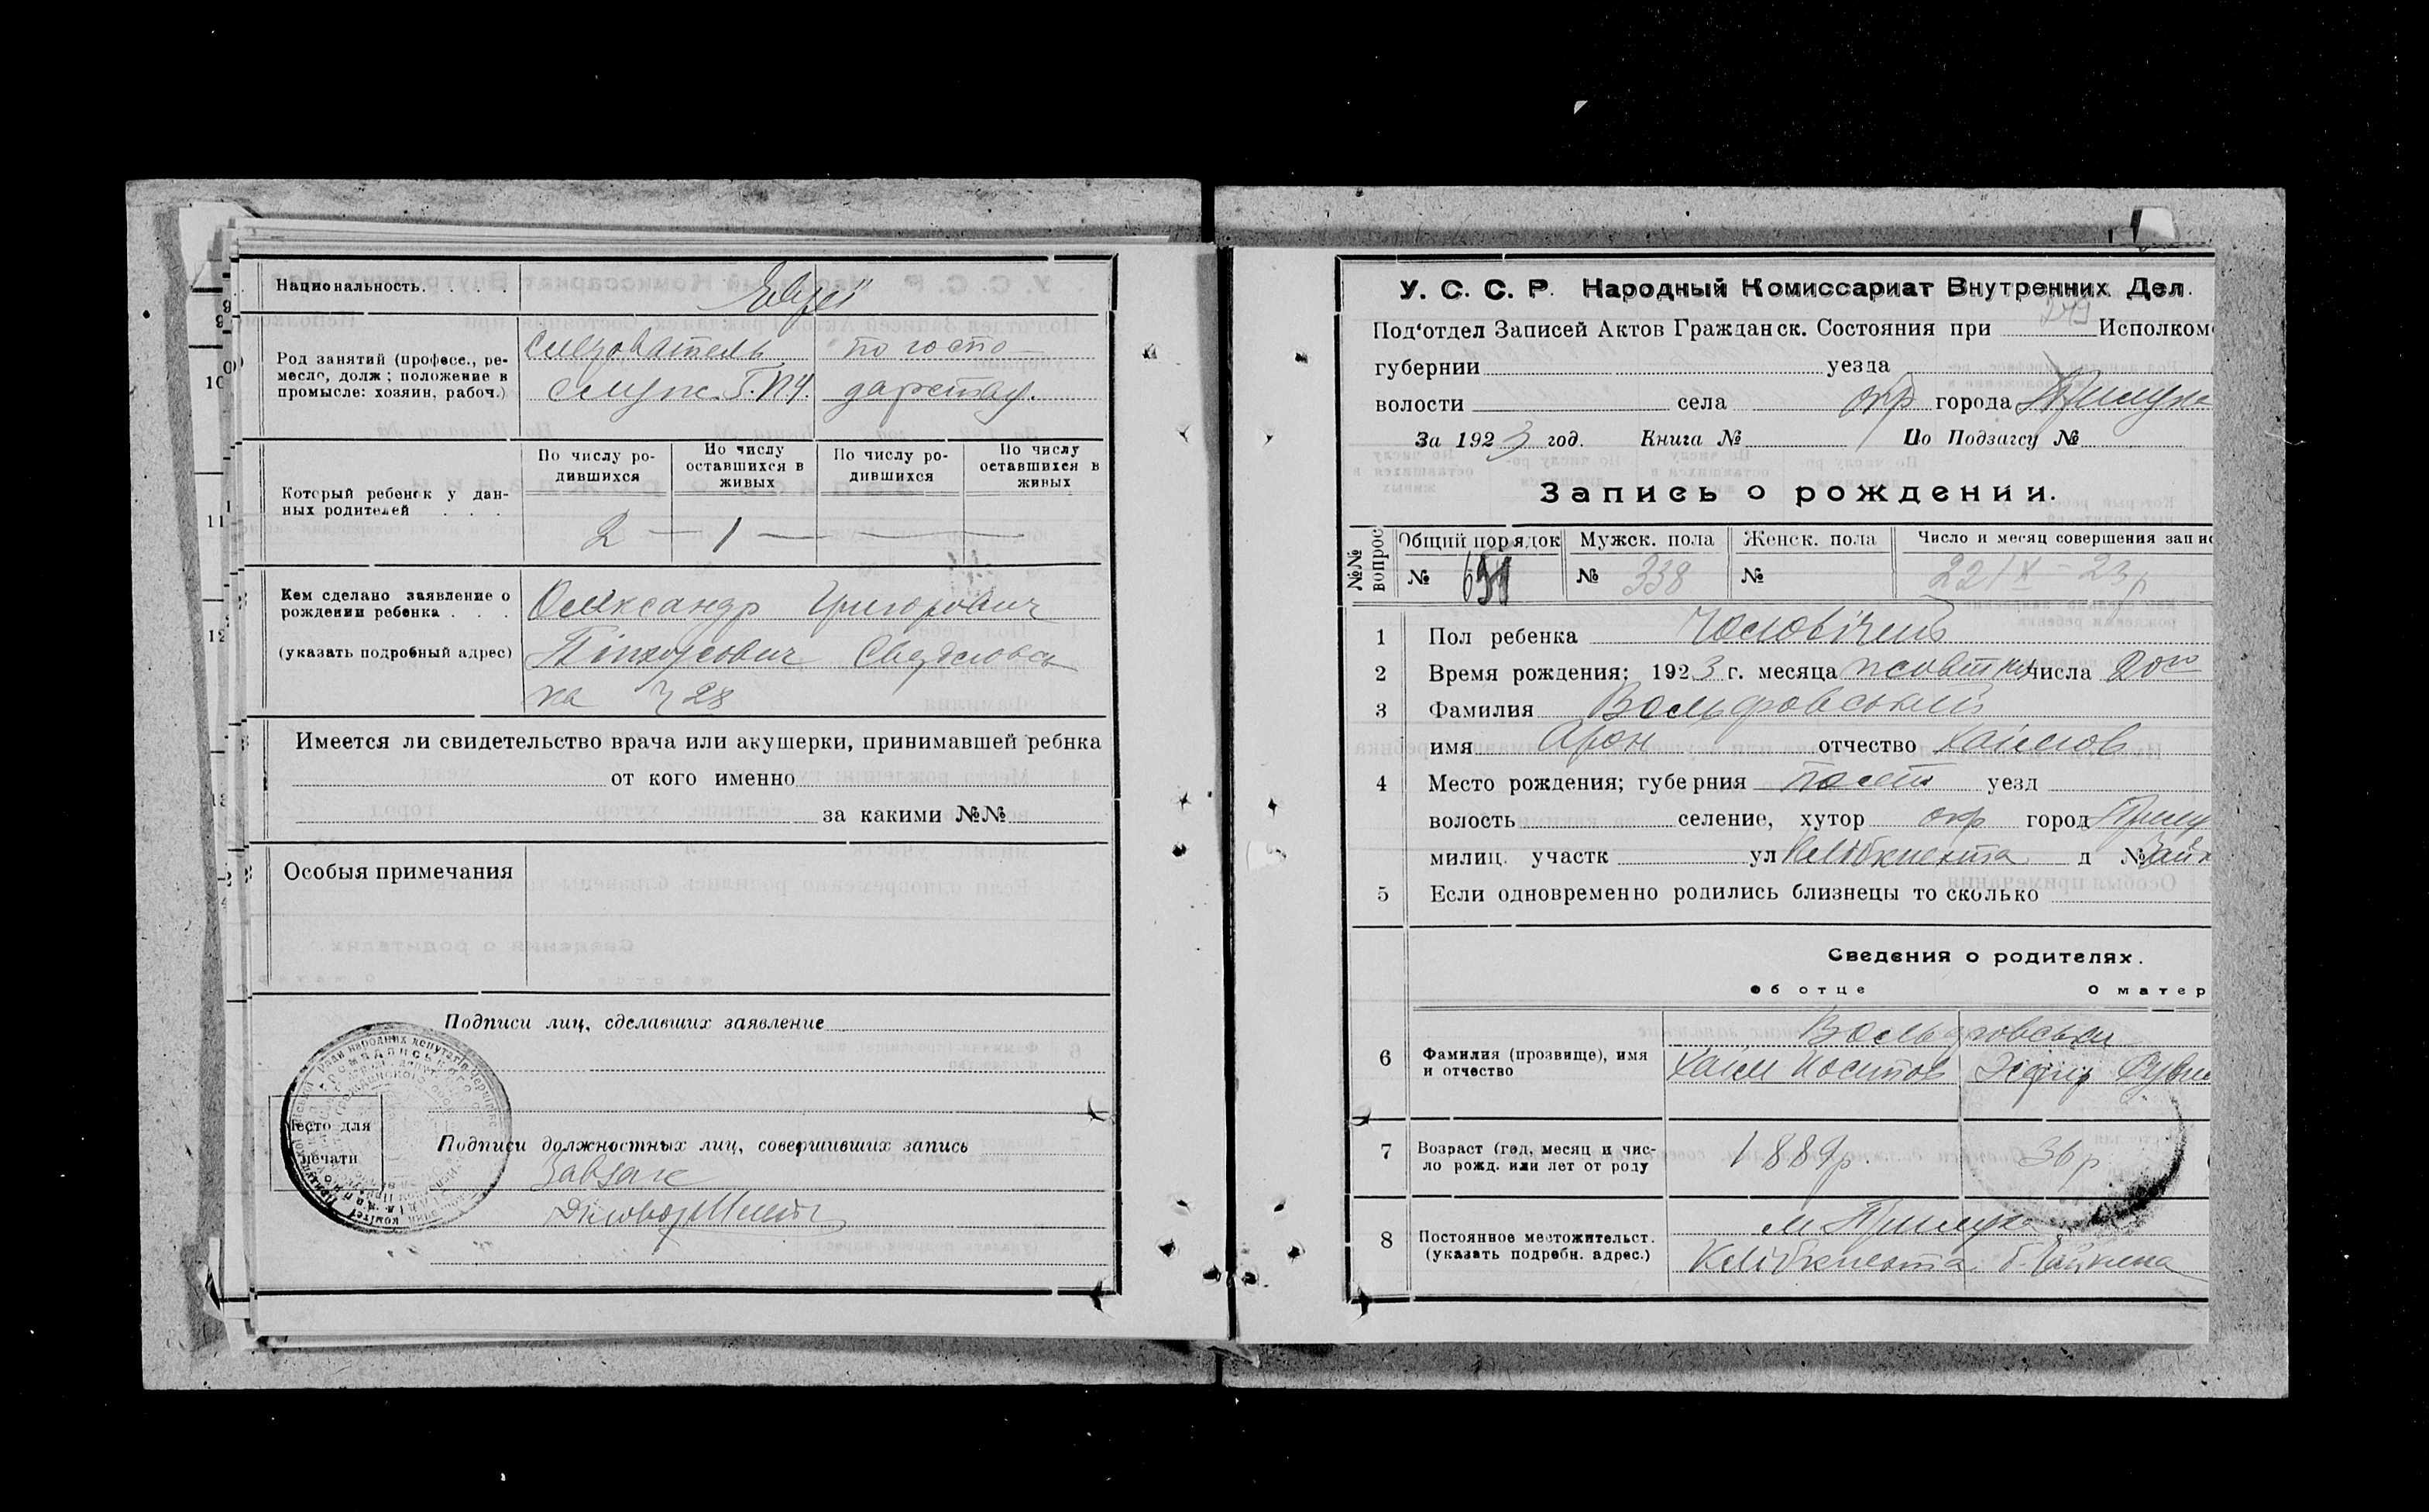 Национальность. . . . .
Євреї
Род занятий (професс., ре-
месло, долж; положение в
промысле: хозяин, рабоч.)
Следователь по госпо-
служ. Г.П.У. дарству.
Который ребенок у дан-
ных родителей . . .
По числу ро-
дившихся
По числу
оставшихся в
живых
По числу ро-
дившихся
По числу
оставшихся в
живых
2 — 1 — — —
Кем сделано заявление о
рождении ребенка . . .
(указать подробный адрес)
Олександр Григорович
Пінхусович Свердловсь
ка 28
Имеется ли свидетельство врача или акушерки, принимавшей ребнка
от кого именно
за какими №№
Особыя примечания
Подписи лиц, сделавших заявление
Место для
печати
Подписи должностных лиц, совершивших запись
Завзаг
Діловод
У. С. С. Р. Народный Комиссариат Внутренних Дел.
Под'отдел Записей Актов Гражданск. Состояния при Исполком
губернии уезда
волости села окр города Прилука
За 1923 год. Книга № По Подзагсу №
Запись о рождении.
№№ вопрос
Общий порядок
Мужск. пола
Женск. пола
Число и месяц совершения запис
№ 651 № 338 № 22/X - 23 р
1 Пол ребенка Чоловічий
2 Время рождения; 1923 г. месяца жовтня числа 20го
3 Фамилия Вольфовський
имя Арон отчество Хаімов
4 Место рождения; губерния Полт уезд
волость селение, хутор окр город Прилу
милиц. участк ул К Лібкнехта д №
5 Если одновременно родились близнецы то сколько
Сведения о родителях.
об отце О матер
6 Фамилия (прозвище), имя
и отчество
Вольфовськи
Хаім Йосипов Эсфир Рувин
7 Возраст (год, месяц и чис-
ло рожд. или лет от роду
1889р. 36 р
8 Постоянное местожительст.
(указать подробн. адрес.)
м Прилука
К Лібкнехта